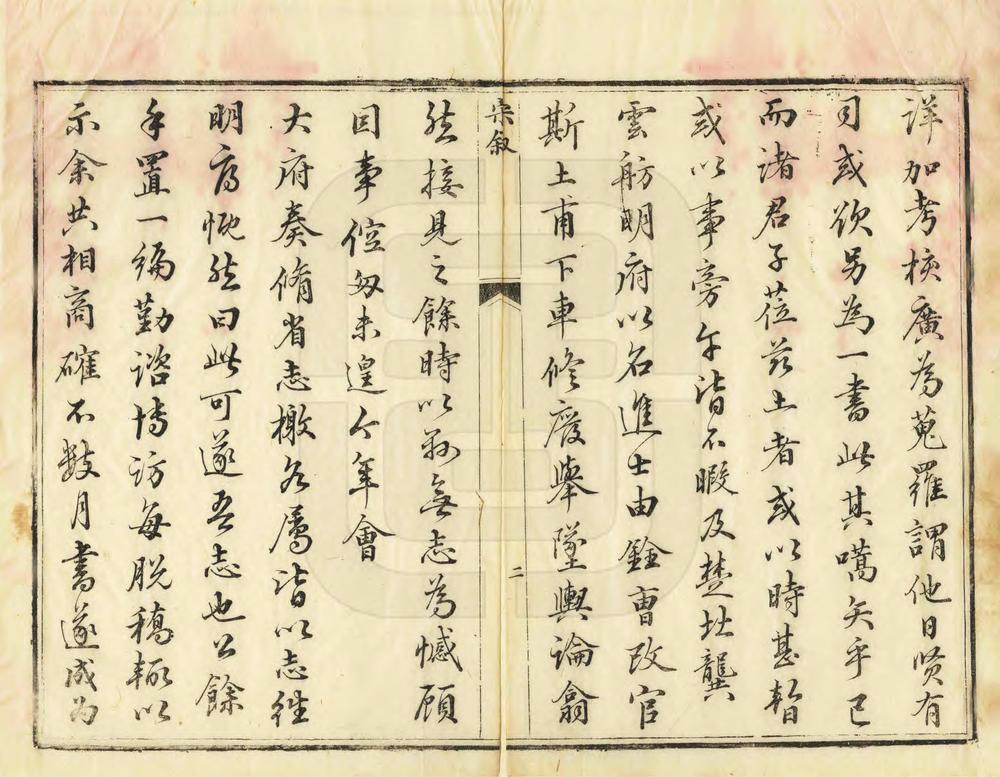 詳加考核廣為蒐羅謂他日賢有
司或欲另為一書此其嚆矢乎已
而諸君子蒞茲土者或以時甚暫
或以事旁午皆不暇及楚北龔
雲舫明府以名進士由銓曹改官
斯土甫下車修廢舉墜輿論翕
宋叙
二
然接見之餘時以縣無志為憾顧
因事倥匆未遑今年會
大府奏脩省志檄各屬皆以志往
明府慨然曰此可遂吾志也公餘
手置一編勤諮博訪每脫稿輒以
示余共相商確不數月書遂成為